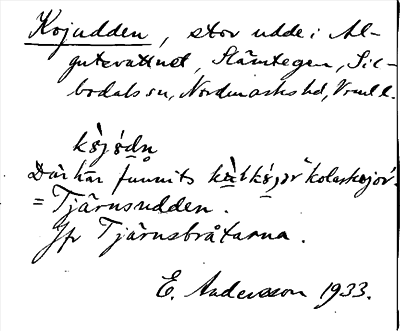 Kojudden, stor udde i Al-
gutsvattnet, Slämtegen, Sil-
bodals sn, Nordmarks hd, Vrml.
Där har funnits "kolarkojor".
= Tjärnsudden.
Jfr Tjärnsbråtarna.
E. Andersson 1933.